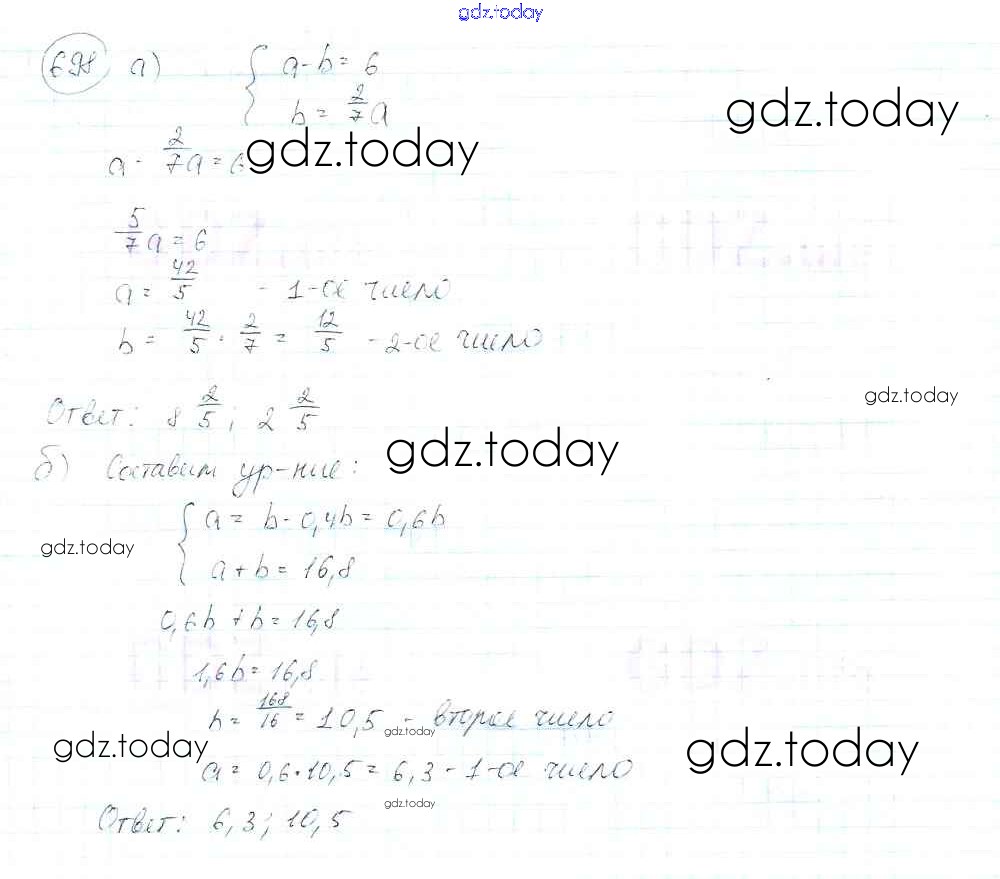 gdz.today
698 а) { a - b = 6
b = 2/7 a
gdz.today
a - 2/7 a = 6
gdz.today
5/7 a = 6
a = 42/5 - 1-ое число
b = 42/5 · 2/7 = 12/5 - 2-ое число
gdz.today
Ответ: 8 2/5; 2 2/5
gdz.today
б) Составим ур-ние:
{ a = b - 0,4b = 0,6b
gdz.today
a + b = 16,8
0,6b + b = 16,8
1,6b = 16,8
b = 168/16 = 10,5 - второе число
gdz.today
gdz.today
gdz.today
a = 0,6·10,5 = 6,3 - 1-ое число
gdz.today
Ответ: 6,3; 10,5